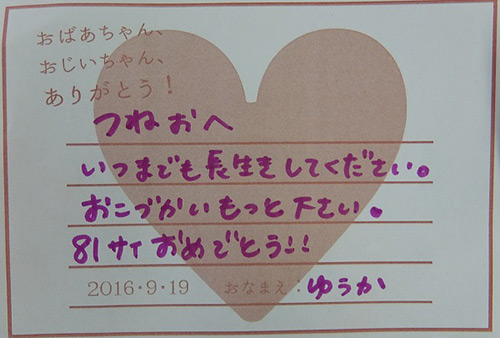 おばあちゃん、
おじいちゃん、
ありがとう!
つねおへ
いつまでも長生きしてください。
おこづかいもっと下さい。
81サイおめでとう!!
2016・9・19 おなまえ:ゆうか